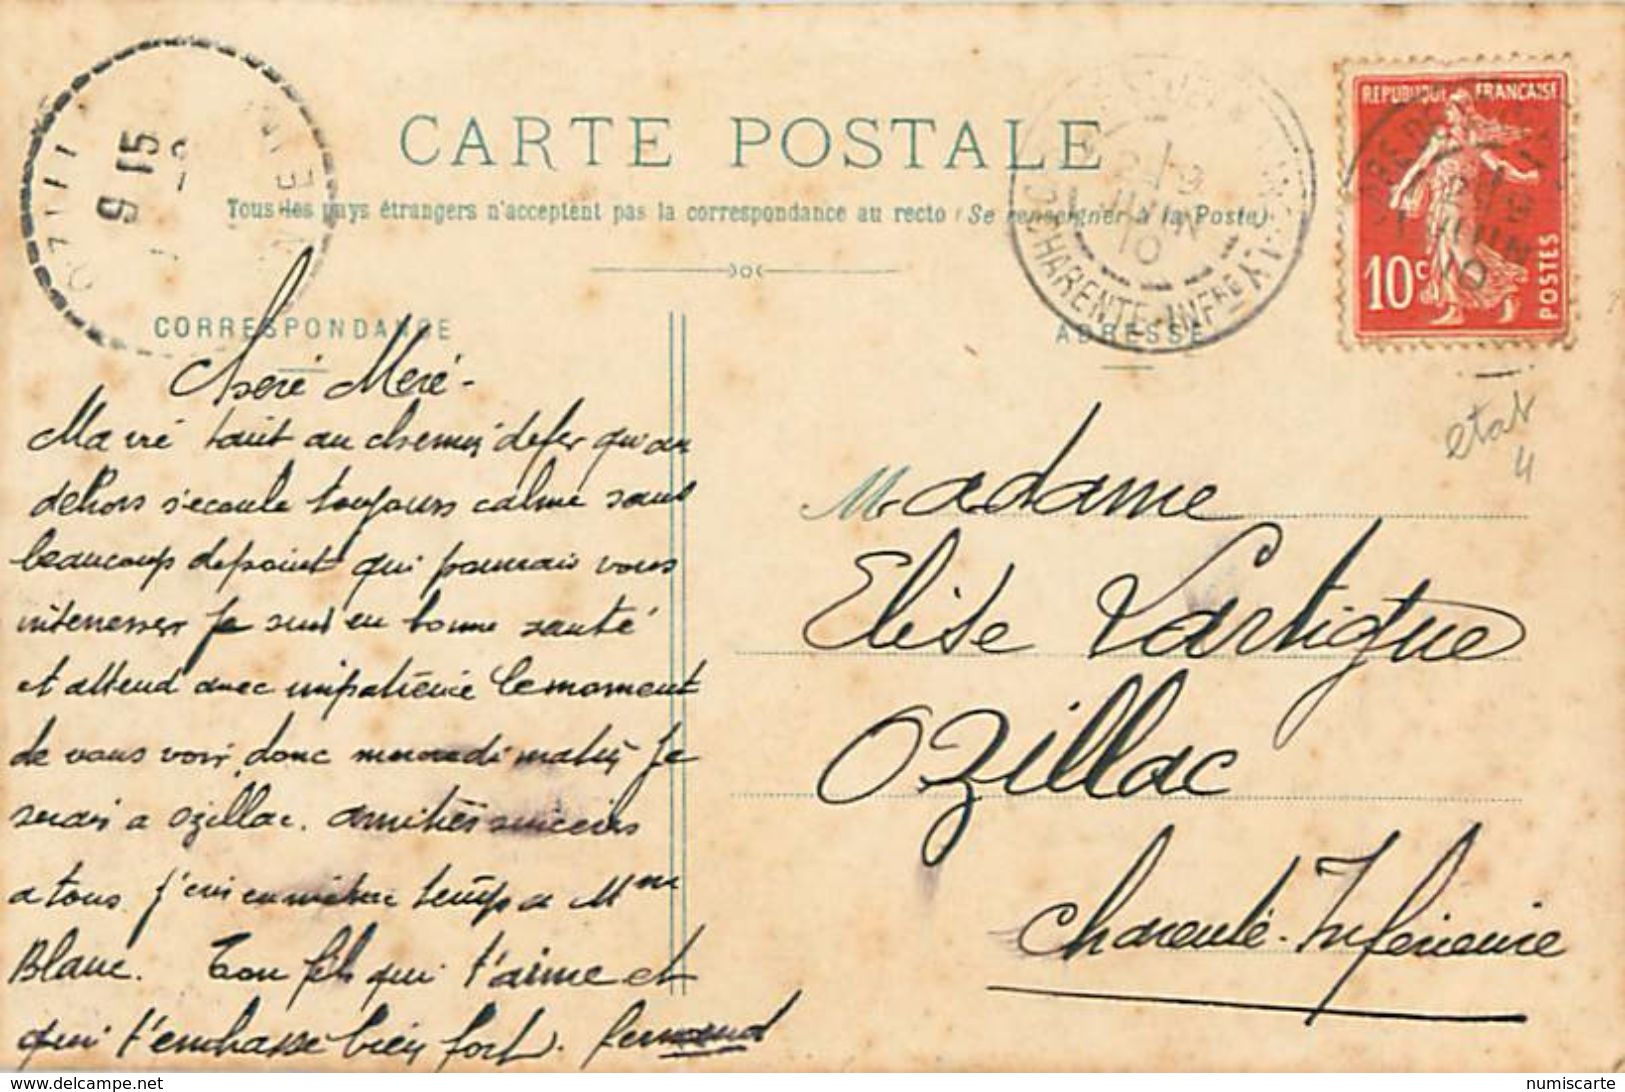 CARTE POSTALE
Tous les pays étrangers n'acceptent pas la correspondance au recto (Se renseigner à la Poste)
CORRESPONDANCE
ADRESSE
REPUBLIQUE FRANÇAISE
10c POSTES
9 15
2 / 9
JUIN
10
CHARENTE-INFRE
etat
4
Cheré Meré -
Ma vié tant au chemin defer qu'au
dehors s'ecoule toujours calme sans
beaucoup depoint qui pourrais vous
interesser Je suis en bonne santé
et attend avec impatience le moment
de vous voir, donc mercredi matin Je
serais a Ozillac. amitiés sincères
a tous. J'eris en même temps a Mme
Blanc. Ton fils qui t'aime et
qui t'embrasse bien fort. Fernand
Madame
Elise Lartigue
Ozillac
Charente-Inferieure
numiscarte